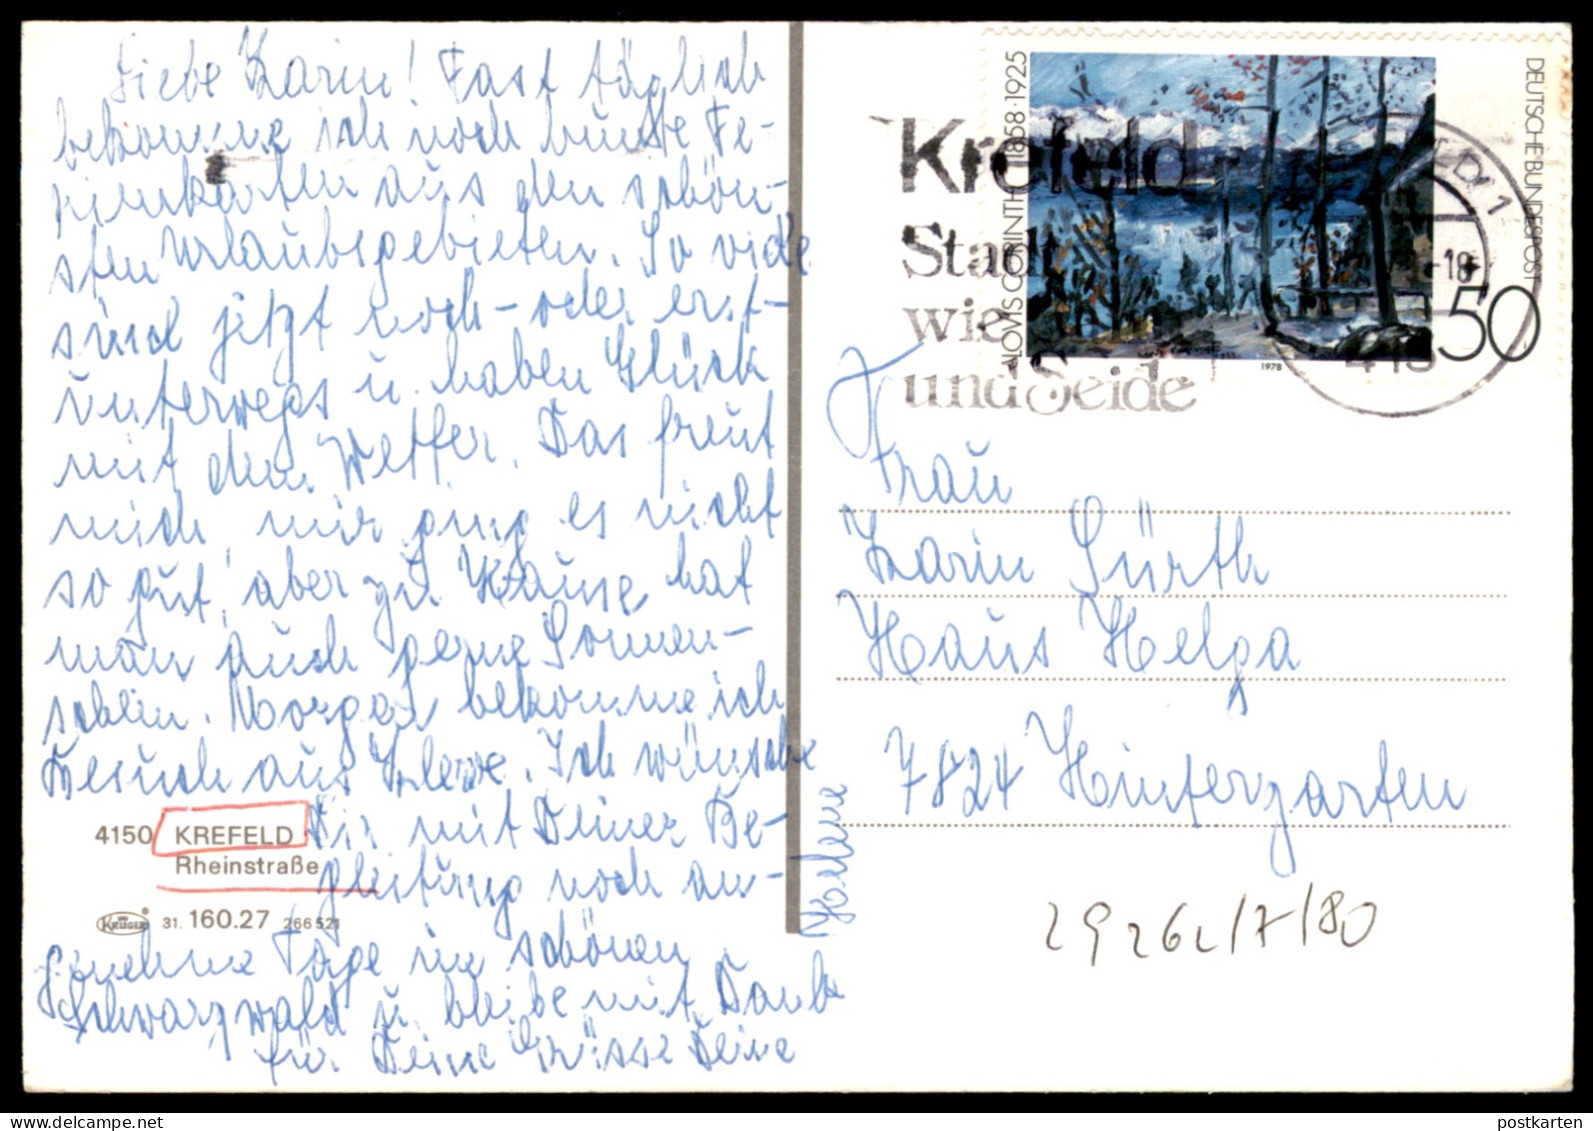 Liebe Karin! Fast täglich
bekomme ich noch bunte Fe-
rienkarten aus den schön-
sten Urlaubsgebieten. So viele
sind jetzt noch- oder erst-
unterwegs u. haben Glück
mit dem Wetter. Das freut
mich, mir ging es nicht
so gut, aber zu Hause hat
man auch gerne Sonnen-
schein. Morgen bekomme ich
Besuch aus Kleve. Ich wünsche
Dir mit Deiner Be-
gleitung noch an-
genehme Tage im schönen
Schwarzwald u. bleibe mit Dank
für Deine Grüsse Deine
4150 KREFELD
Rheinstraße
KRÜGER 31. 160.27 266521
Krefeld
Stadt
wie
und Seide
LOVIS CORINTH 1858·1925
DEUTSCHE BUNDESPOST
50
1978
-18
415
1
Frau
Karin Gürth
Haus Helga
7824 Hinterzarten
postkarten